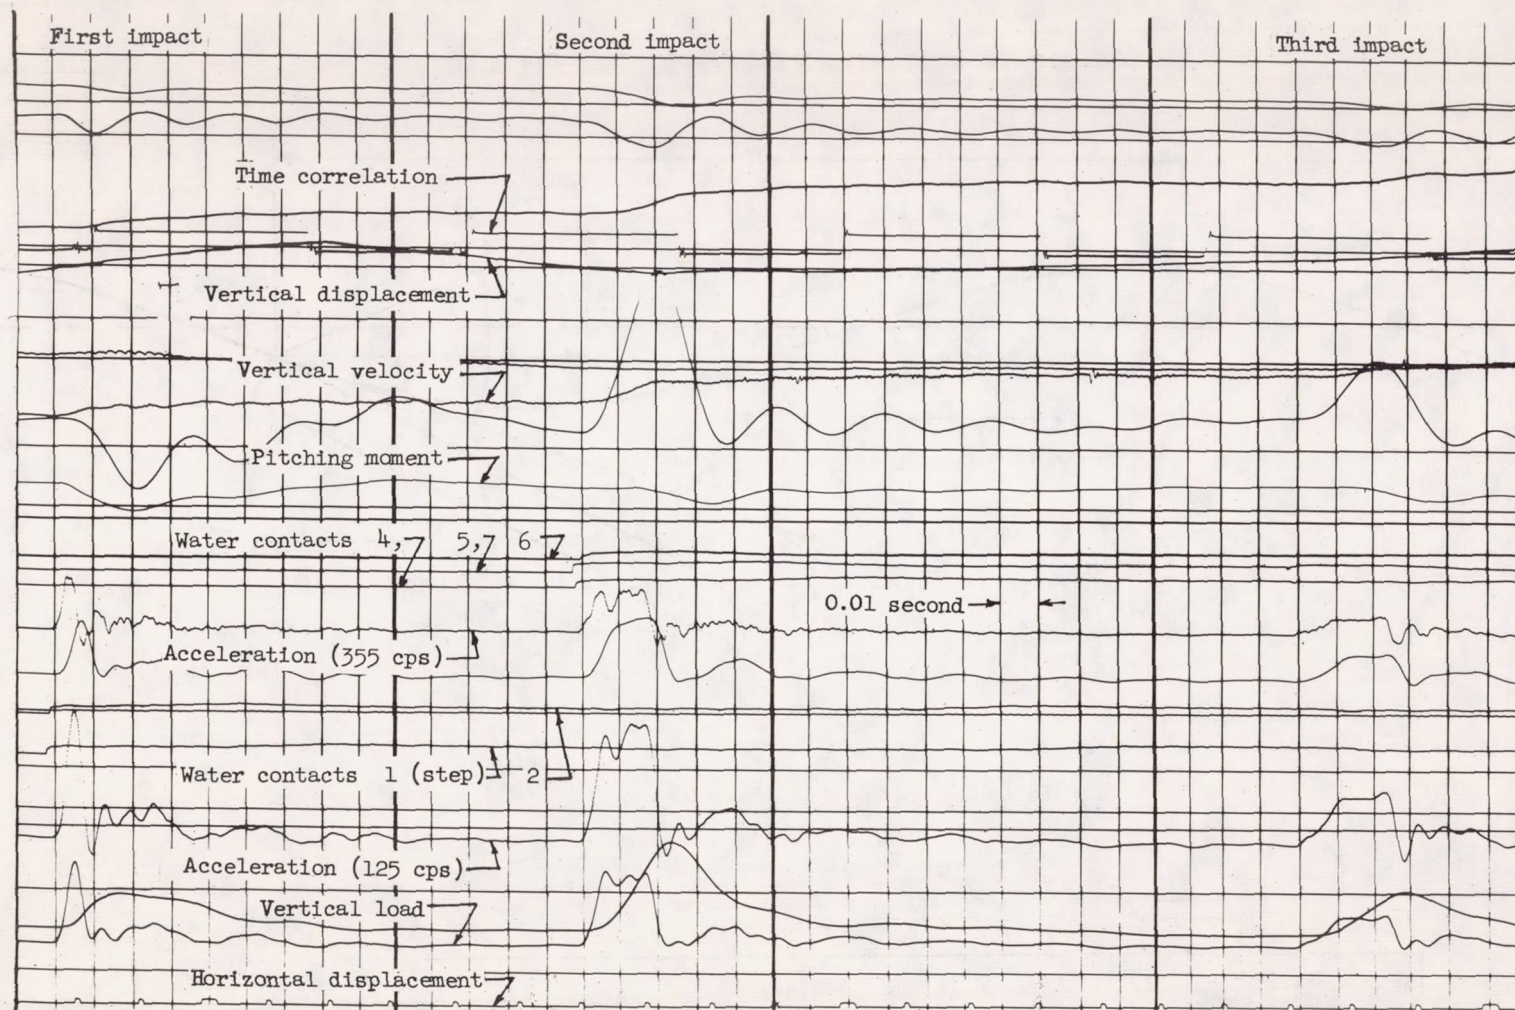 First impact
Second impact
Third impact
Time correlation
Vertical displacement
Vertical velocity
Pitching moment
Water contacts 4, 5, 6
0.01 second
Acceleration (355 cps)
Water contacts 1 (step) 2
Acceleration (125 cps)
Vertical load
Horizontal displacement